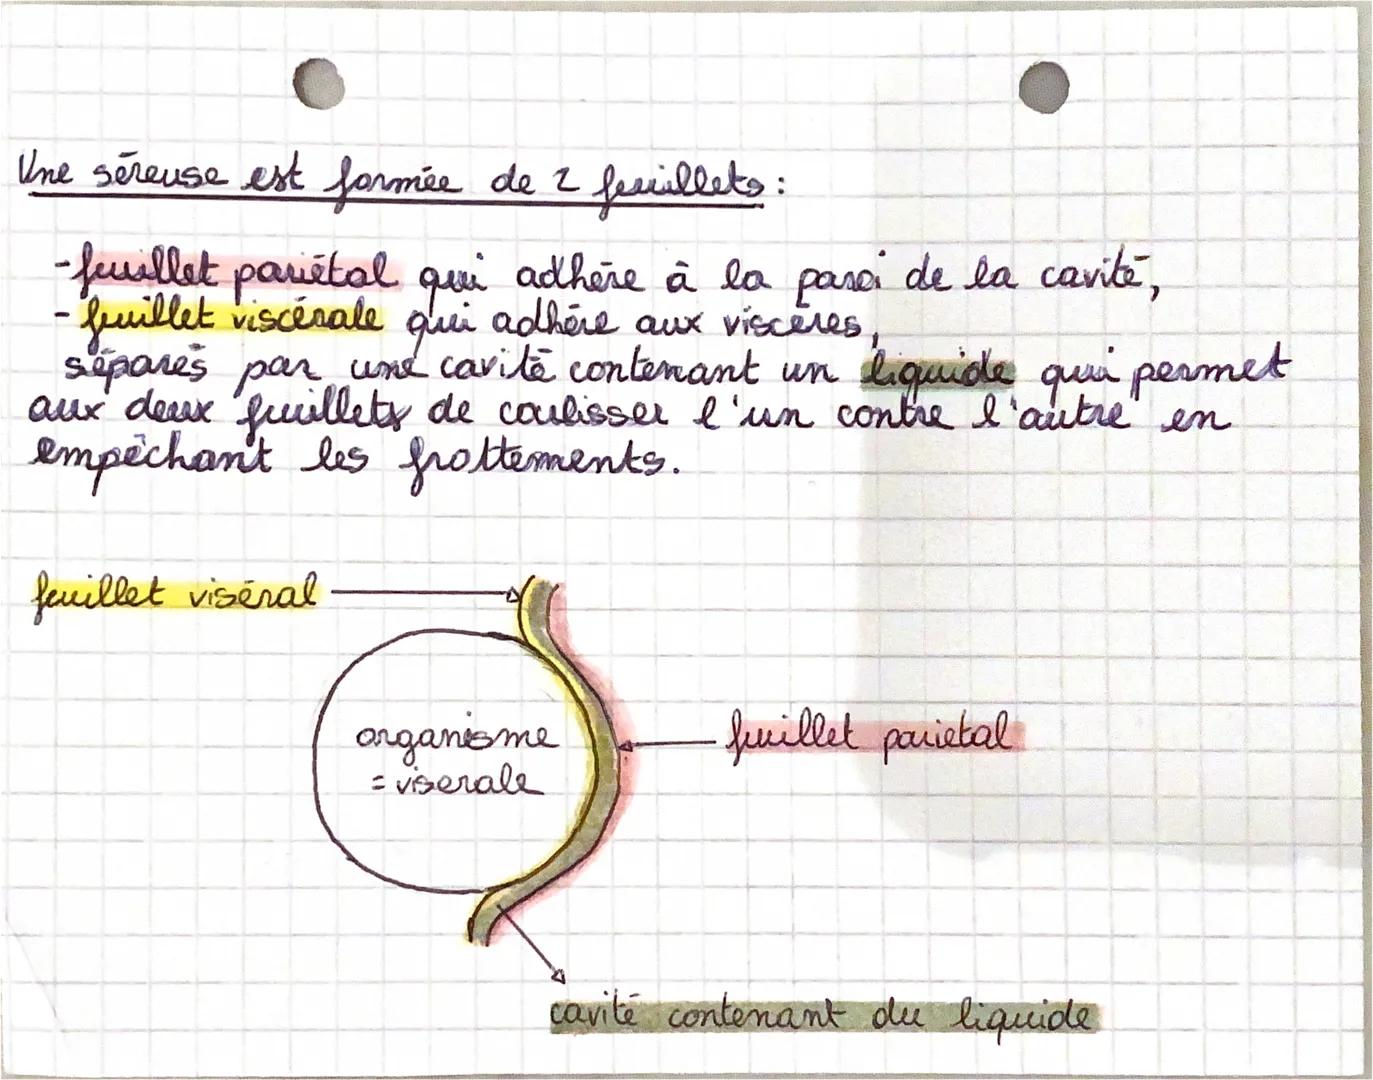 Une séreuse est formée de 2 feuillets :
- feuillet pariétal qui adhère à la paroi de la cavité,
- feuillet viscérale qui adhère aux viscères,
séparés par une cavité contenant un liquide qui permet
aux deux feuillets de coulisser l'un contre l'autre en
empêchant les frottements.
feuillet viséral
organisme
= viserale
feuillet parietal
cavité contenant du liquide